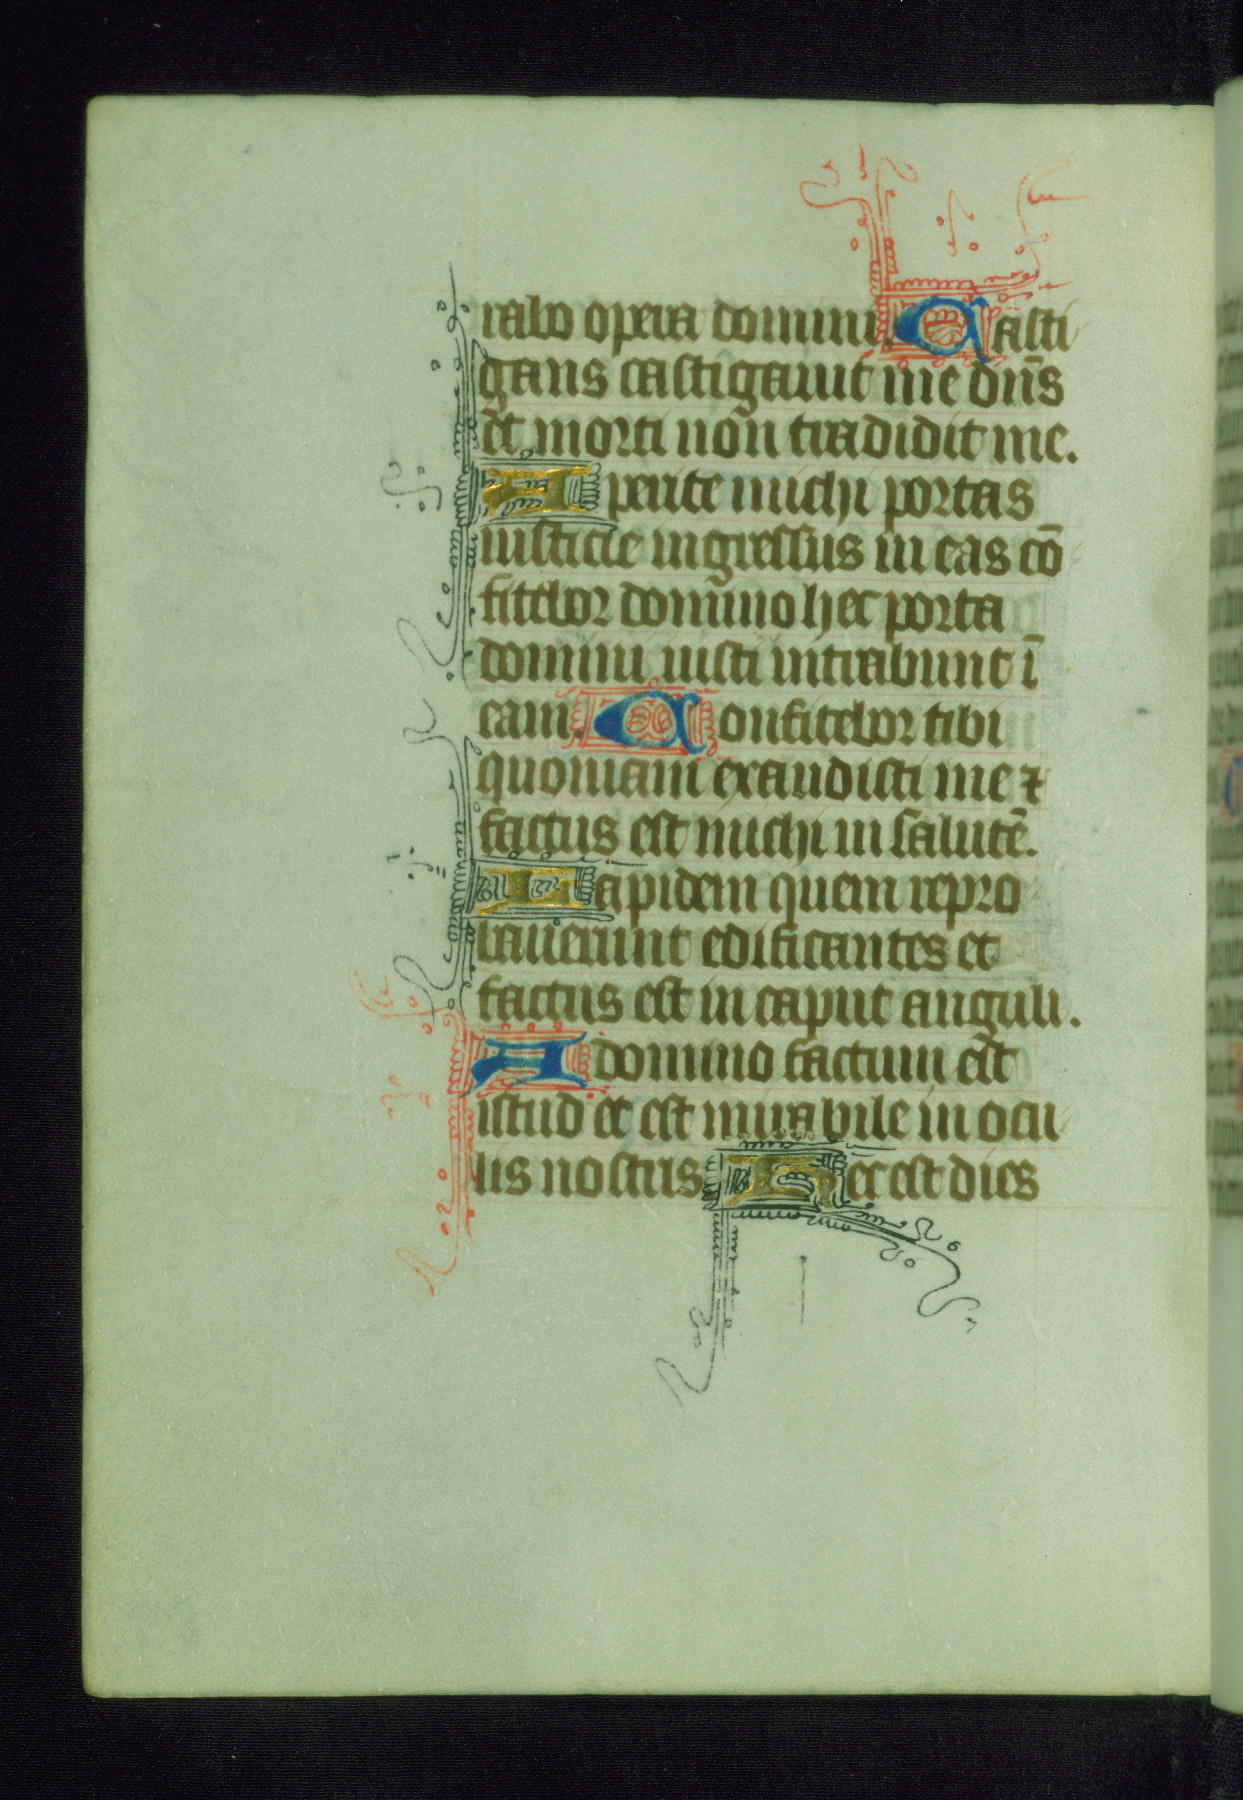 rabo opera domini. Casti
gans castigauit me dn̄s
et morti non tradidit me.
Aperite michi portas
iusticie ingressus in eas cō
fitebor domino hec porta
domini iusti intrabunt ī
eam. Confitebor tibi
quoniam exaudisti me ⁊
factus est michi in salutē.
Lapidem quem repro
bauerunt edificantes et
factus est in caput anguli.
A domino factum est
istud et est mirabile in ocu
lis nostris Hec est dies